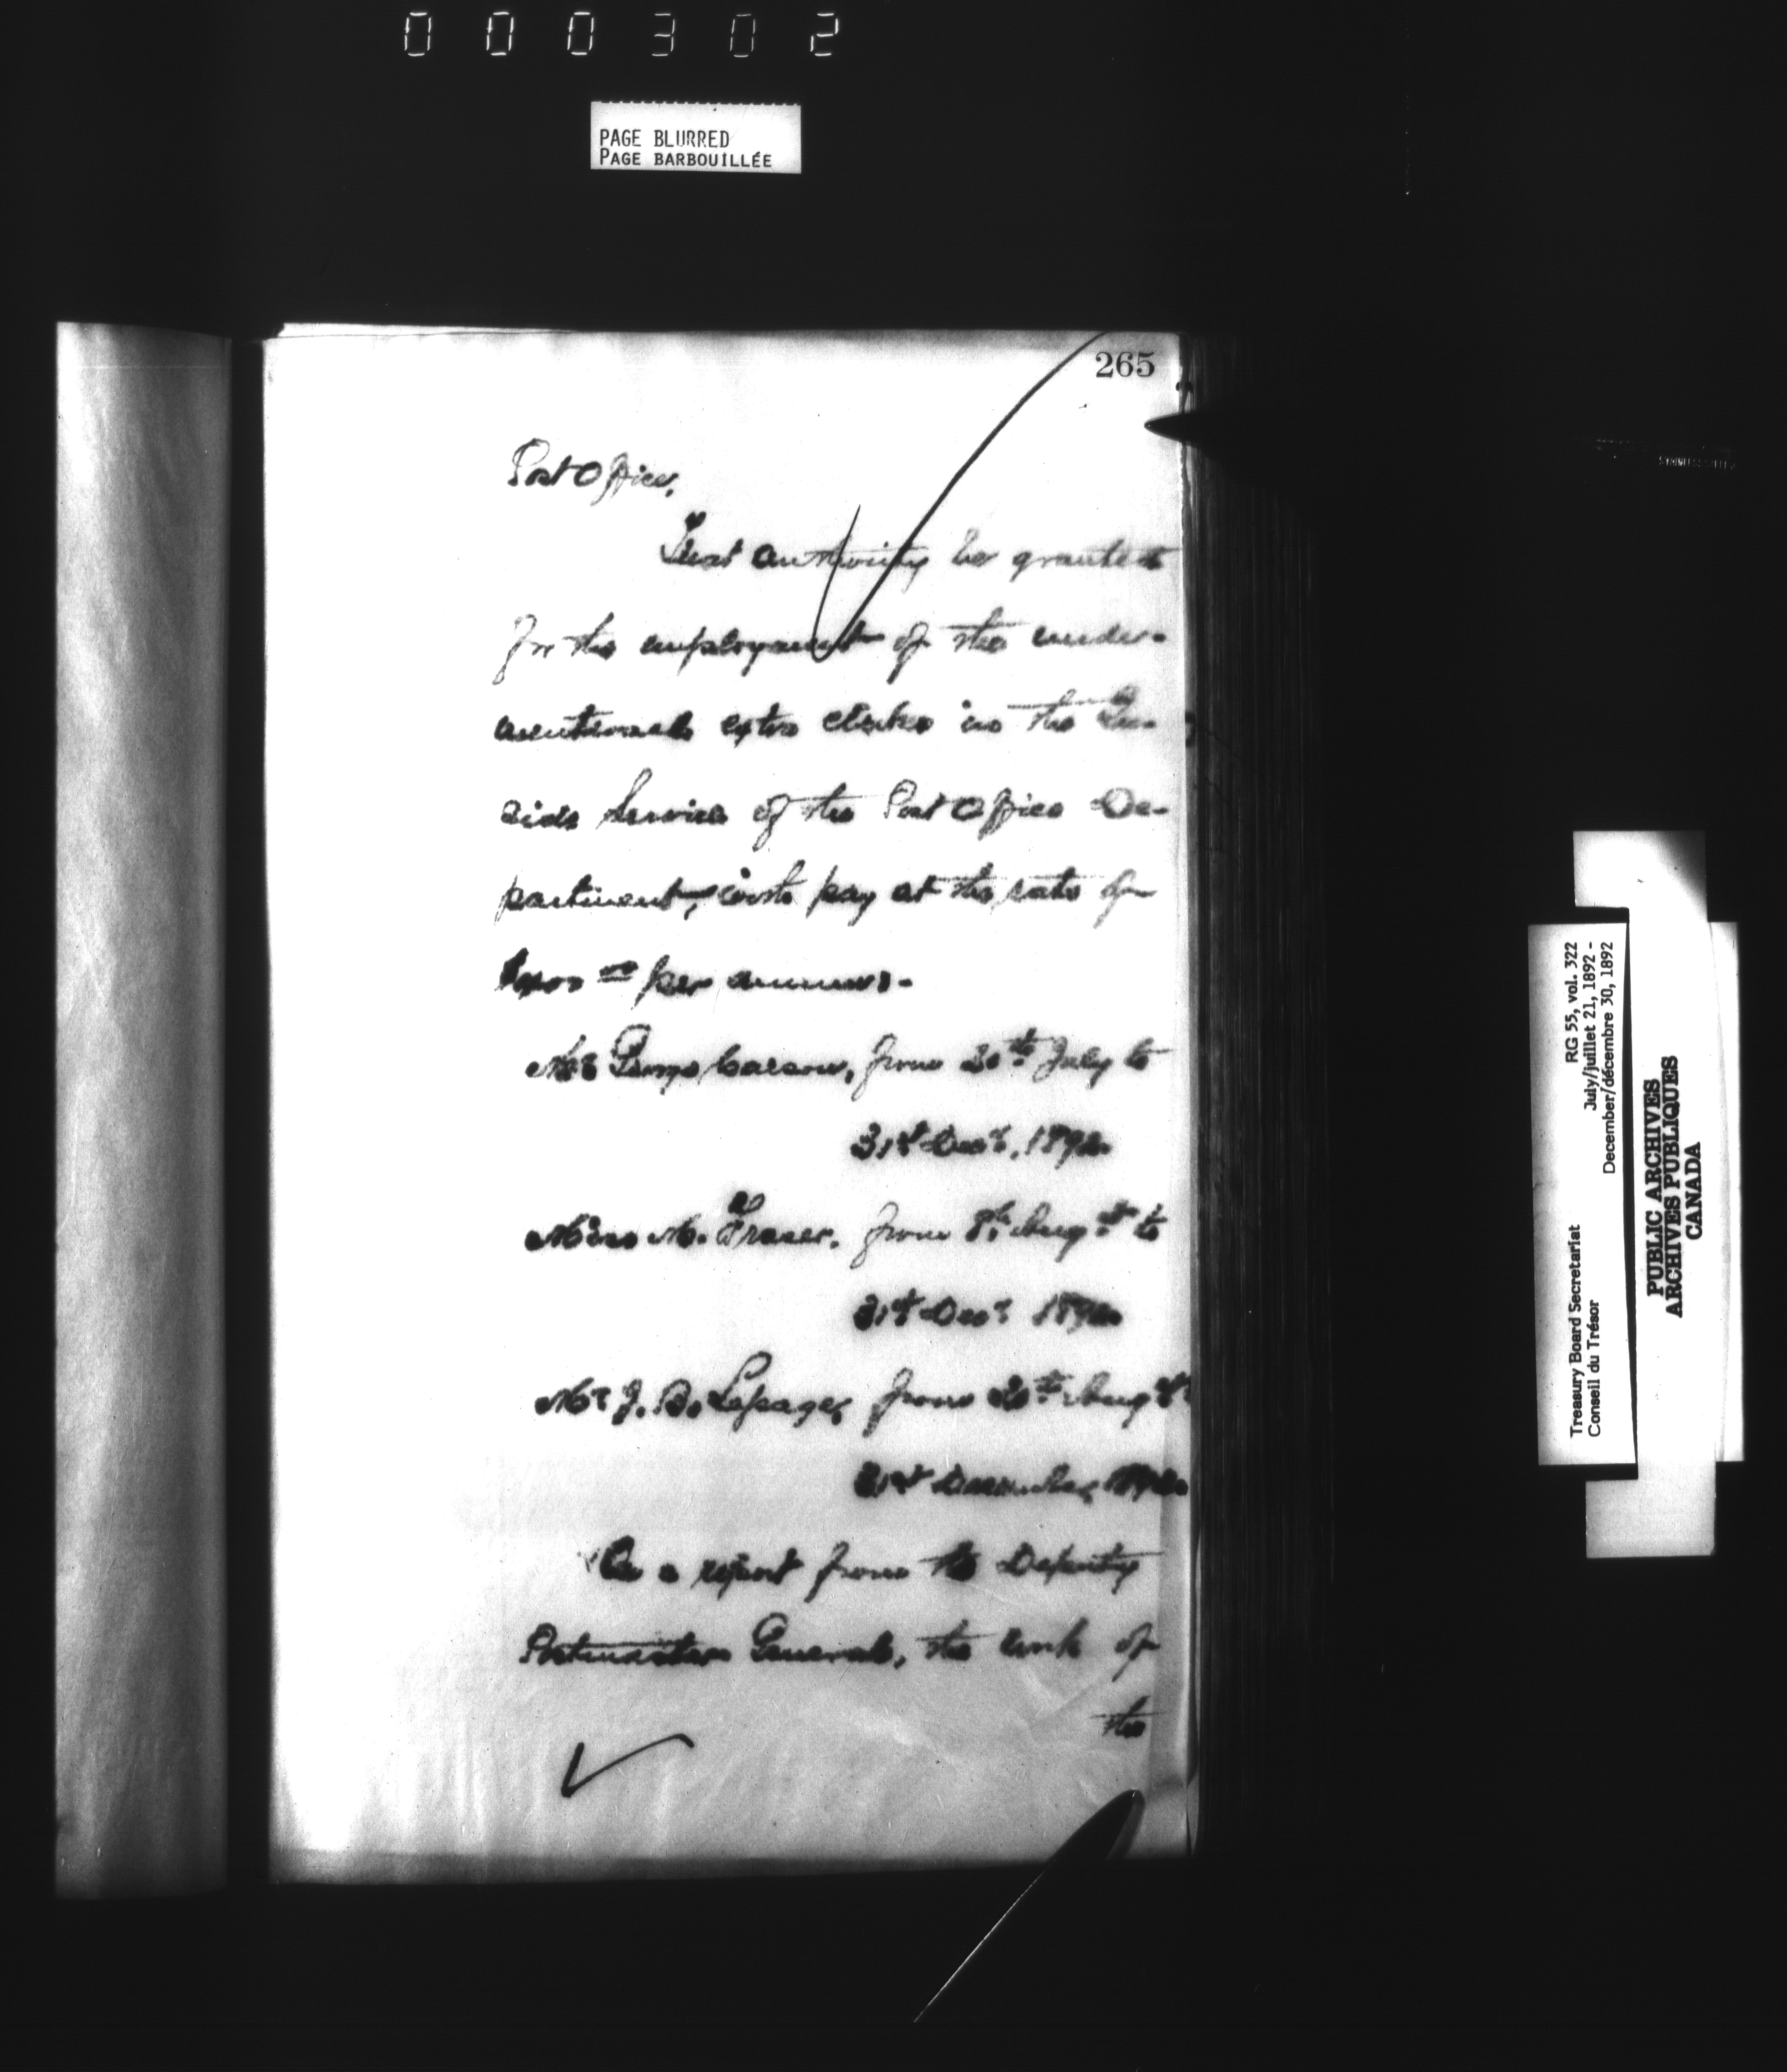 000302
PAGE BLURRED
PAGE BARBOUILLÉE
265
Post Office.
That authority be granted
for the employment of the under-
mentioned extra clerks in the In-
side Service of the Post Office De-
partment, with pay at the rate of
per annum.-
Mr George Carson, from 20th July to
31st Decr. 1892.
Miss M. Fraser. from 8th Augst to
31st Decr. 1892.
Mr J. B. Lepage, from 20th Augst
31st December, 1892.
On a report from the Deputy
Postmaster General, the work of
the
RG 55, vol. 322
July/juillet 21, 1892 -
December/décembre 30, 1892
Treasury Board Secretariat
Conseil du Trésor
PUBLIC ARCHIVES
ARCHIVES PUBLIQUES
CANADA